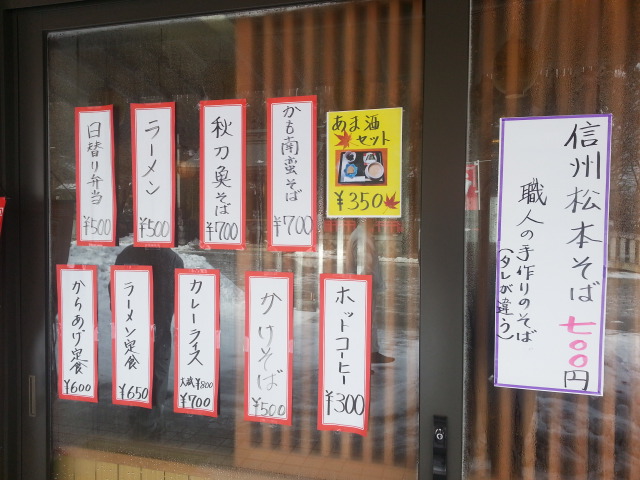 日替り弁当
¥500
ラーメン
¥500
秋刀魚そば
¥700
かも南蛮そば
¥700
あま酒
セット
¥350
からあげ定食
¥600
ラーメン定食
¥650
カレーライス
大盛¥800
¥700
かけそば
¥500
ホットコーヒー
¥300
信州松本そば七〇〇円
職人の手作りのそば
(タレが違う)